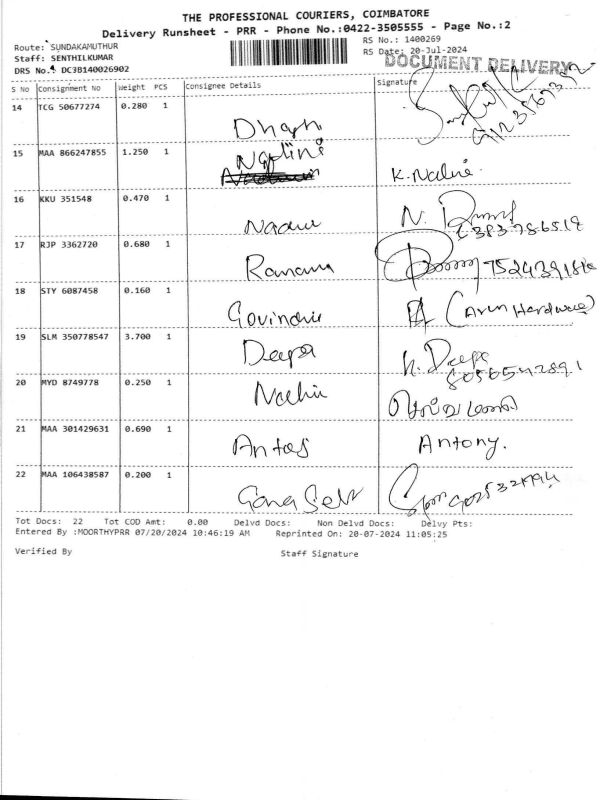 THE PROFESSIONAL COURIERS, COIMBATORE
Delivery Runsheet - PRR - Phone No.:0422-3505555 - Page No.:2
Route: SUNDAKAMUTHUR
RS No.: 1400269
Staff: SENTHILKUMAR
RS Date: 20-Jul-2024
DRS No. DC3B140026902
DOCUMENT DELIVERY
S No Consignment No Weight PCS Consignee Details Signature
14 TCG 50677274 0.280 1
15 MAA 866247855 1.250 1 Nalini K. Nalini
16 KKU 351548 0.470 1
17 RJP 3362720 0.680 1 Ramana
18 STY 6087458 0.160 1 (Arun Hardware)
19 SLM 350778547 3.700 1 Deepa Deepa
20 MYD 8749778 0.250 1
21 MAA 301429631 0.690 1 Antony.
22 MAA 106438587 0.200 1
Tot Docs: 22 Tot COD Amt: 0.00 Delvd Docs: Non Delvd Docs: Delvy Pts:
Entered By :MOORTHYPRR 07/20/2024 10:46:19 AM Reprinted On: 20-07-2024 11:05:25
Verified By Staff Signature